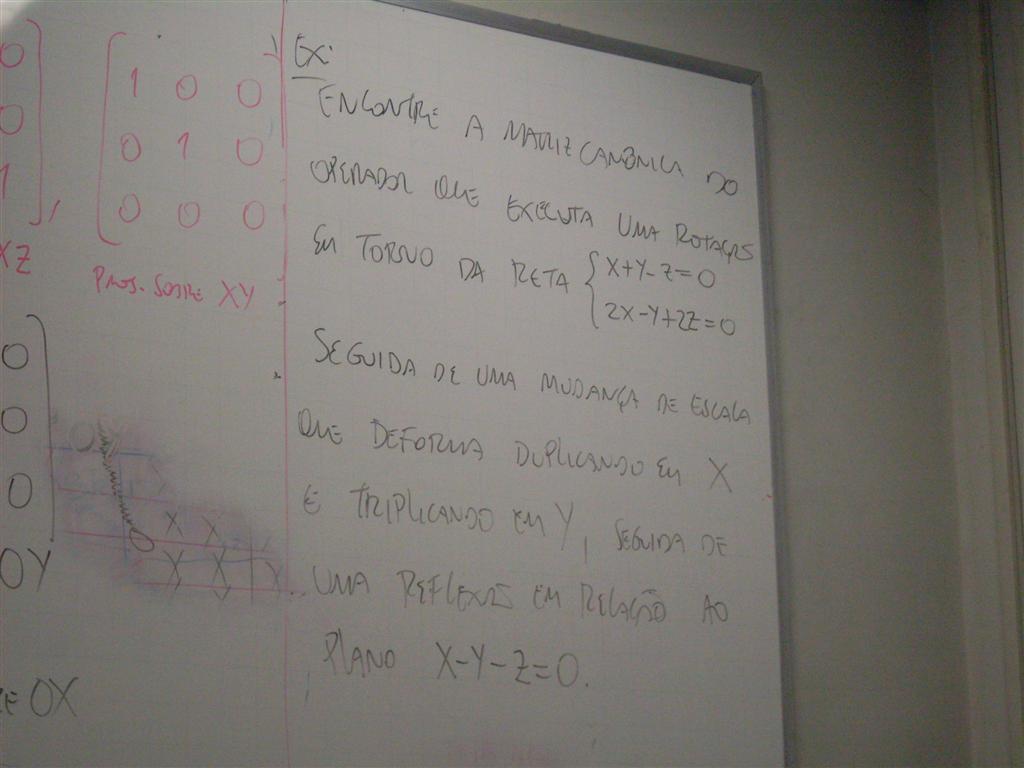 0
0
1
],
XZ
1 0 0
0 1 0
0 0 0
PROJ. SOBRE XY
0
0
0
OY
X X
Y X Y
RE OX
EX:
ENCONTRE A MATRIZ CANÔNICA DO
OPERADOR QUE EXECUTA UMA ROTAÇÃO
EM TORNO DA RETA { X+Y-Z=0
2X-Y+2Z=0
SEGUIDA DE UMA MUDANÇA DE ESCALA
QUE DEFORMA DUPLICANDO EM X
E TRIPLICANDO EM Y, SEGUIDA DE
UMA REFLEXÃO EM RELAÇÃO AO
PLANO X-Y-Z=0.